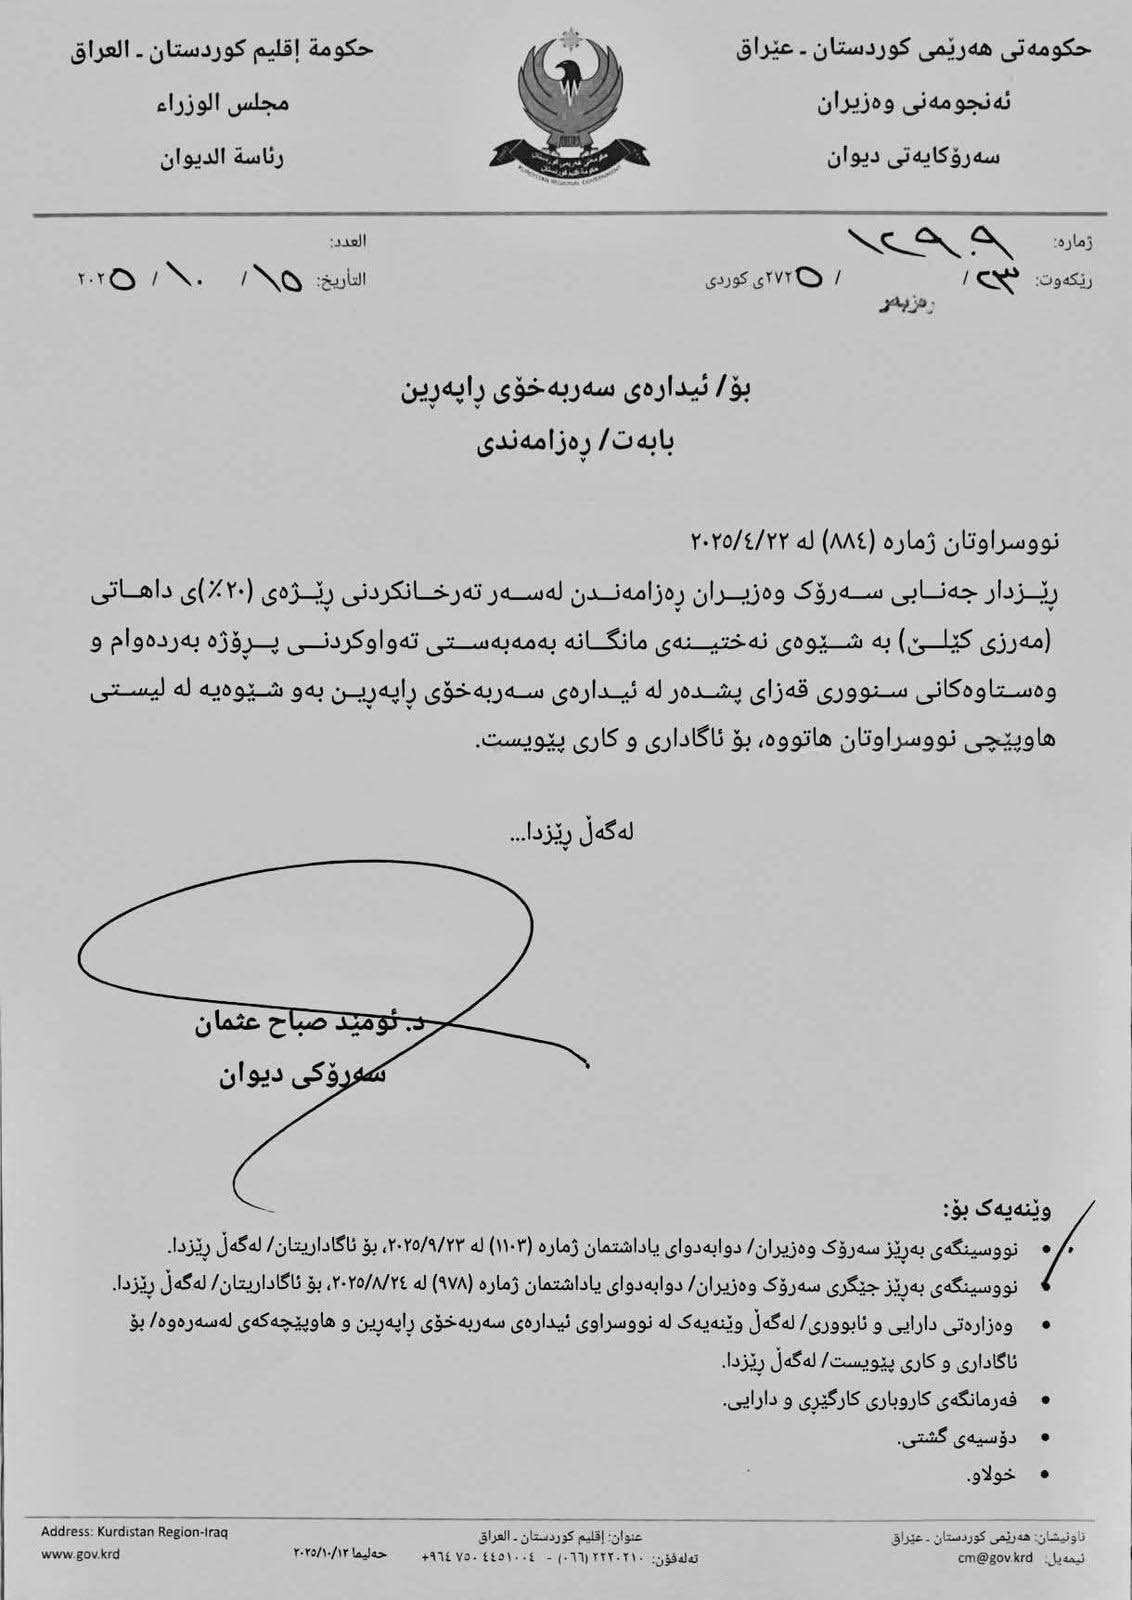 حکومەتی هەرێمی کوردستان ـ عێراق
ئەنجومەنی وەزیران
سەرۆکایەتی دیوان
حكومة إقليم كوردستان ـ العراق
مجلس الوزراء
رئاسة الديوان
KURDISTAN REGIONAL GOVERNMENT
ژمارە: ١٢٩٠٩
ڕێکەوت: ٢٣/ ڕەزبەر / ٢٧٢٥ی کوردی
العدد:
التأريخ: ١٥/ ١٠/ ٢٠٢٥
بۆ/ ئیدارەی سەربەخۆی ڕاپەڕین
بابەت/ ڕەزامەندی
نووسراوتان ژمارە (٨٨٤) لە ٢٠٢٥/٤/٢٢
ڕێزدار جەنابی سەرۆک وەزیران ڕەزامەندن لەسەر تەرخانکردنی ڕێژەی (٢٠٪)ی داهاتی
(مەرزی کێلێ) بە شێوەی نەختینەی مانگانە بەمەبەستی تەواوکردنی پڕۆژە بەردەوام و
وەستاوەکانی سنووری قەزای پشدەر لە ئیدارەی سەربەخۆی ڕاپەڕین بەو شێوەیە لە لیستی
هاوپێچی نووسراوتان هاتووە، بۆ ئاگاداری و کاری پێویست.
لەگەڵ ڕێزدا...
د. ئومێد صباح عثمان
سەرۆکی دیوان
وێنەیەک بۆ:
• نووسینگەی بەڕێز سەرۆک وەزیران/ دوابەدوای یاداشتمان ژمارە (١١٠٣) لە ٢٠٢٥/٩/٢٣، بۆ ئاگاداریتان/ لەگەڵ ڕێزدا.
• نووسینگەی بەڕێز جێگری سەرۆک وەزیران/ دوابەدوای یاداشتمان ژمارە (٩٧٨) لە ٢٠٢٥/٨/٢٤، بۆ ئاگاداریتان/ لەگەڵ ڕێزدا.
• وەزارەتی دارایی و ئابووری/ لەگەڵ وێنەیەک لە نووسراوی ئیدارەی سەربەخۆی ڕاپەڕین و هاوپێچەکەی لەسەرەوە/ بۆ
ئاگاداری و کاری پێویست/ لەگەڵ ڕێزدا.
• فەرمانگەی کاروباری کارگێڕی و دارایی.
• دۆسیەی گشتی.
• خولاو.
ناونیشان: هەرێمی کوردستان ـ عێراق
ئیمەیل: cm@gov.krd
عنوان: إقليم كوردستان ـ العراق
تەلەفۆن: ٢٢٢٠٢١٠ (٠٦٦) - ٠٠٤ ٤٤٥١ ٧٥٠ ٩٦٤+
حەلیما ٢٠٢٥/١٠/١٢
Address: Kurdistan Region-Iraq
www.gov.krd